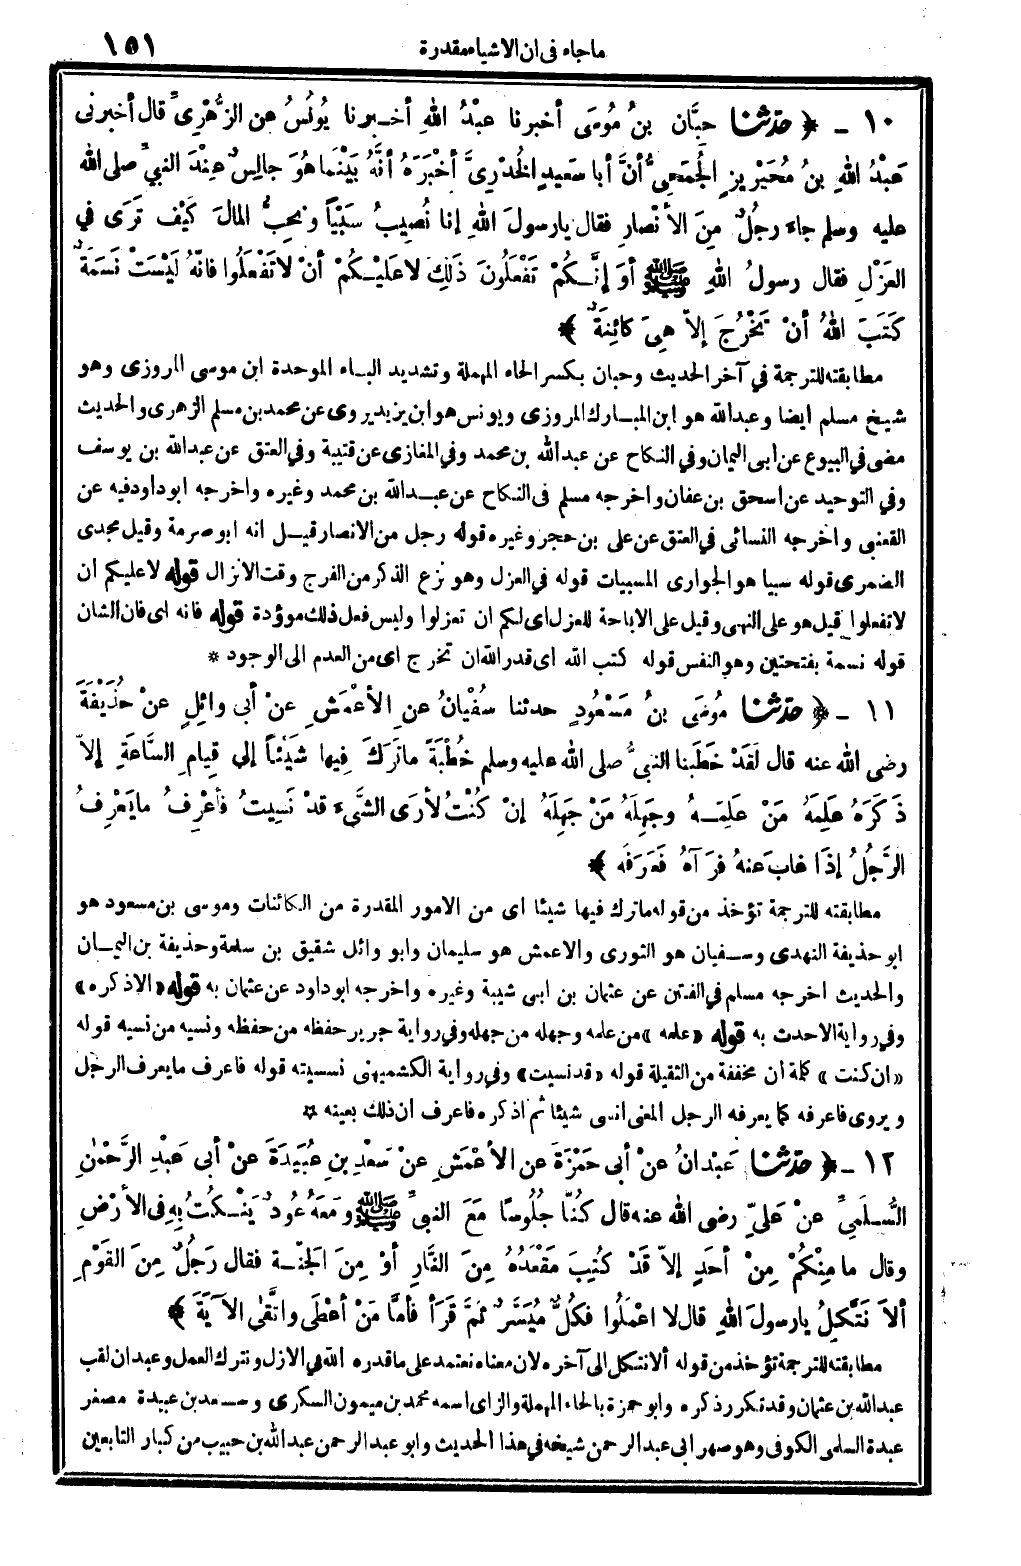 ماجاء فى ان الاشياء مقدرة
١٥١
١٠ - ﴿ حَدَّثَنَا حِبَّان بنُ مُوسَى أخبرنا عبْدُ اللهِ أخبرنا يُونُسُ عنِ الزُّهْرِىِّ قال أخبرنى
عَبْدُ اللهِ بنُ مُحَيْرِيزٍ الْجُمَحِىُّ أنَّ أبا سَعِيدٍ الخُدْرِىَّ أخْبَرَهُ أنَّهُ بَيْنَما هُوَ جالِسٌ عِنْدَ النبىِّ صلى الله
عليه وسلم جاءَ رجلٌ مِنَ الأنْصارِ فقال يارسولَ اللهِ إنا نُصِيبُ سَبْيًا ونُحِبُّ المالَ كَيْفَ تَرَى فِي
العَزْلِ فقال رسولُ اللهِ ﷺ أوَ إنَّكُمْ تَفْعَلُونَ ذَلِكَ لاعَلَيْكُمْ أنْ لاتَفْعَلُوا فانّهُ لَيْسَتْ نَسَمَةٌ
كَتَبَ اللهُ أنْ تَخْرُجَ إلاّ هِىَ كائِنَةٌ ﴾
مطابقته للترجمة في آخر الحديث وحبان بكسر الحاء المهملة وتشديد الباء الموحدة ابن موسى المروزى وهو
شيخ مسلم ايضا وعبدالله هو ابن المبارك المروزى ويونس هو ابن يزيد يروى عن محمد بن مسلم الزهرى والحديث
مضى في البيوع عن ابى اليمان وفي النكاح عن عبدالله بن محمد وفي المغازى عن قتيبة وفي العتق عن عبدالله بن يوسف
وفي التوحيد عن اسحق بن عفان واخرجه مسلم فى النكاح عن عبدالله بن محمد وغيره واخرجه ابو داود فيه عن
القعنبى واخرجه النسائى في العتق عن على بن حجر وغيره قوله رجل من الانصار قيل انه ابو صرمة وقيل مجدى
الضمرى قوله سبيا هو الجوارى المسبيات قوله في العزل وهو نزع الذكر من الفرج وقت الانزال قوله لاعليكم ان
لاتفعلوا قيل هو على النهى وقيل على الاباحة للعزل اى لكم ان تعزلوا وليس فعل ذلك موؤدة قوله فانه اى فان الشان
قوله نسمة بفتحتين وهو النفس قوله كتب الله اى قدر الله ان تخرج اى من العدم الى الوجود *
١١ - ﴿ حَدَّثَنَا مُوسَى بنُ مَسْعُودٍ حدثنا سُفْيَانُ عنِ الأعْمَشِ عنْ أبى وائِلٍ عنْ حُذَيْفَةَ
رضى الله عنه قال لَقَدْ خَطَبنا النبىُّ صلى الله عليه وسلم خُطْبَةً ماتَرَكَ فِيها شَيْئاً إلى قِيامِ السَّاعَةِ إلاّ
ذَكَرَهُ عَلِمَهُ مَنْ عَلِمَهُ وجَهِلَهُ مَنْ جَهِلَهُ إنْ كُنْتُ لأرَى الشَّىءَ قدْ نَسِيتُ فأعْرِفُ مايَعْرِفُ
الرَّجُلُ إذَا غابَ عنهُ فرَآهُ فَعَرَفَه ﴾
مطابقته للترجمة تؤخذ من قوله ماترك فيها شيئا اى من الامور المقدرة من الكائنات وموسى بن مسعود هو
ابو حذيفة النهدى وسفيان هو الثورى والاعمش هو سليمان وابو وائل شقيق بن سلمة وحذيفة بن اليمان
والحديث اخرجه مسلم في الفتن عن عثمان بن ابى شيبة وغيره واخرجه ابو داود عن عثمان به قوله «الاذكره»
وفي رواية الاحدث به قوله «علمه» من علمه وجهله من جهله وفي رواية جرير حفظه من حفظه ونسيه من نسيه قوله
«ان كنت» كلمة أن مخففة من الثقيلة قوله «قد نسيت» وفي رواية الكشميهنى نسيته قوله فاعرف مايعرف الرجل
ويروى فاعرفه كما يعرفه الرجل المعنى انسى شيئا ثم اذكره فاعرف ان ذلك بعينه *
١٢ - ﴿ حَدَّثَنَا عَبْدانُ عنْ أبى حَمْزَةَ عنِ الأعْمَشِ عنْ سَعْدِ بنِ عُبَيْدَةَ عنْ أبى عَبْدِ الرَّحْمٰنِ
السُّلَمِىِّ عنْ عَلىٍّ رضى الله عنه قال كُنّا جُلُوسًا مَعَ النبىِّ ﷺ ومَعَهُ عُودٌ يَنْكُتُ بِهِ فى الأرْضِ
وقال مامِنْكُمْ مِنْ أحَدٍ إلاّ قَدْ كُتِبَ مَقْعَدُهُ مِنَ النَّارِ أوْ مِنَ الجَنّةِ فقال رَجُلٌ مِنَ القَوْمِ
ألاَ نَتَّكِلُ يارسولَ اللهِ قال لا اعْمَلُوا فكُلٌّ مُيَسَّرٌ ثمَّ قَرَأَ فأمّا مَنْ أعْطَى واتَّقٰى الآيَةَ ﴾
مطابقته للترجمة تؤخذ من قوله ألانتكل الى آخره لان معناه نعتمد على ماقدره الله في الازل ونترك العمل وعبدان لقب
عبدالله بن عثمان وقد تكرر ذكره وابو حمزة بالحاء المهملة والزاى اسمه محمد بن ميمون السكرى وسعد بن عبيدة مصغر
عبدة السلمى الكوفى وهو صهر ابى عبدالرحمن شيخه في هذا الحديث وابو عبدالرحمن عبدالله بن حبيب من كبار التابعين